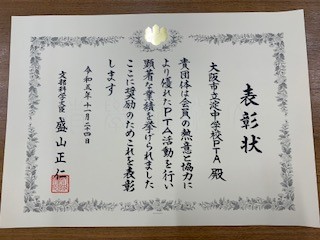 表彰状
大阪市立淀中学校PTA 殿
貴団体は会員の熱意と協力に
より優れたPTA活動を行い
顕著な業績を挙げられました
ここに奨励のためこれを表彰
します
令和五年十一月二十四日
文部科学大臣 盛山正仁